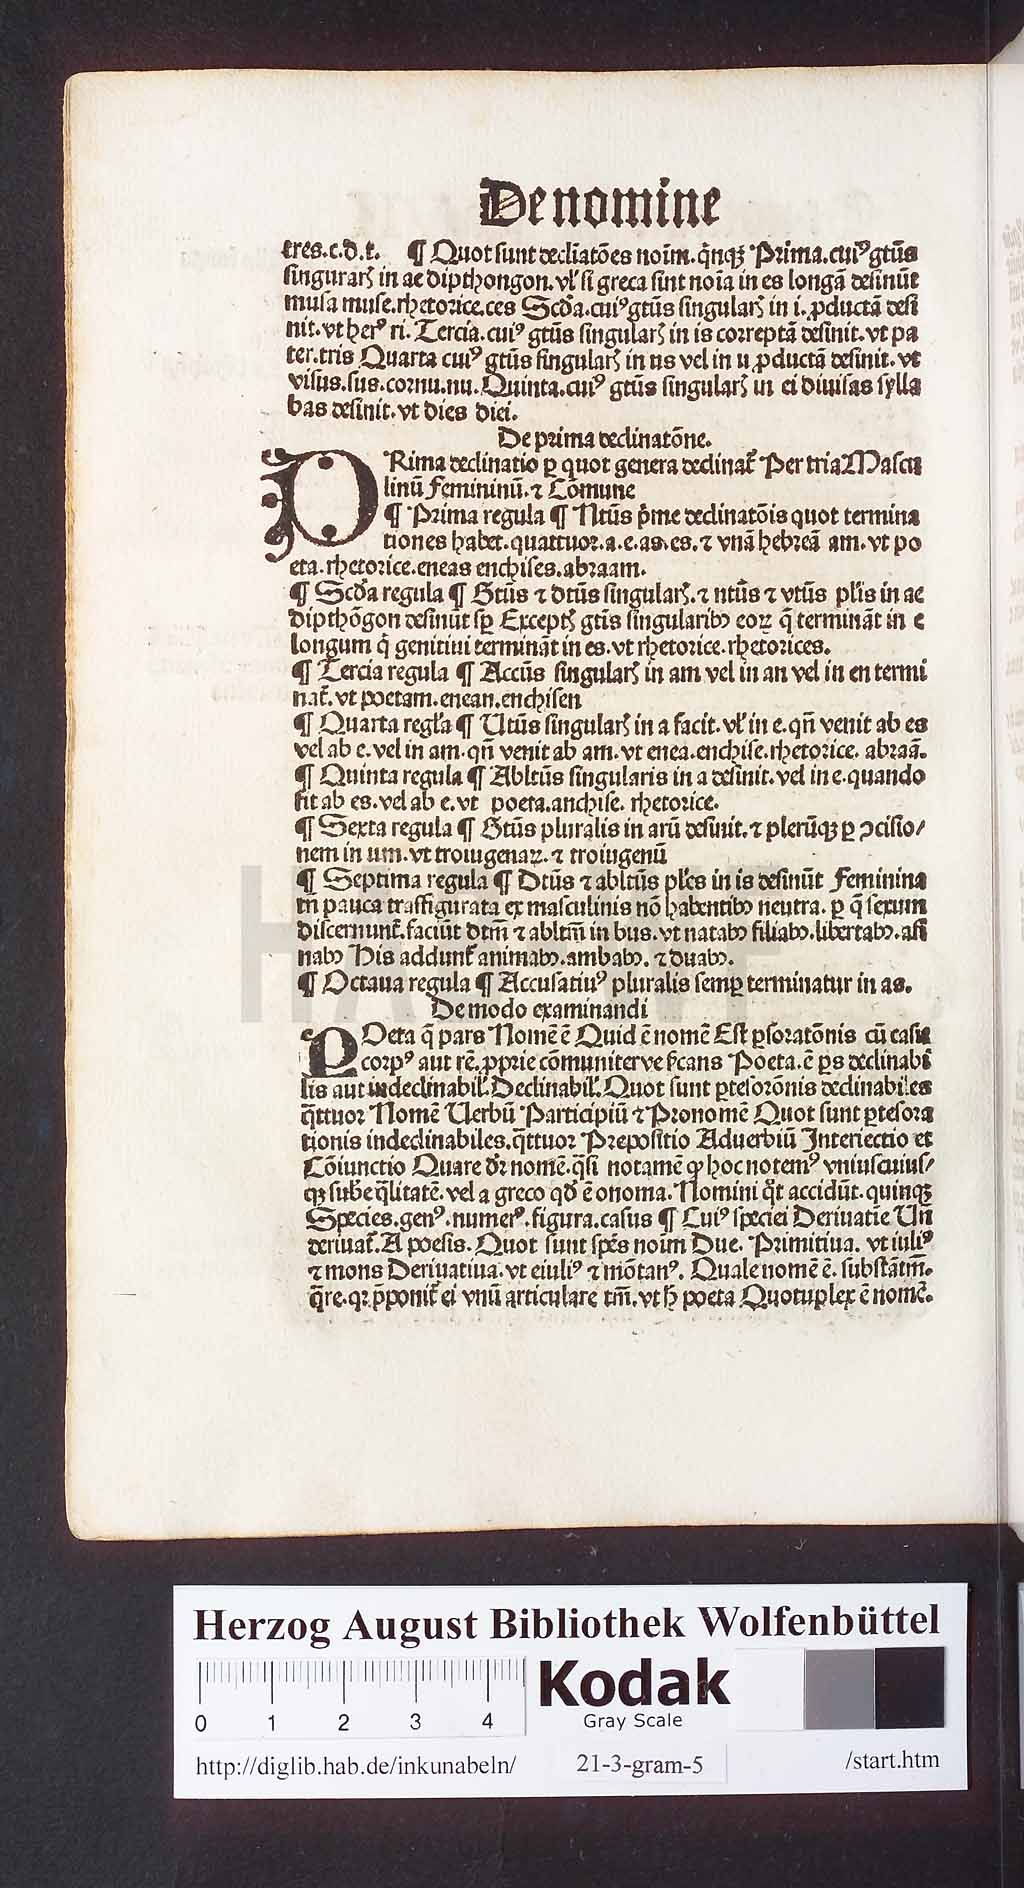 De nomine
tres.c.d.t. ¶ Quot sunt decliatões noīm. q̄nqꝫ Prima.cui⁹ gtūs
singularꝭ in ae dipthongon. vl' si greca sunt noīa in es longā desinūt
musa muse.rhetorice.ces Scd̄a.cui⁹ gtūs singularꝭ in i. ꝓductā desi
nit. vt her⁹ ri. Tercia.cui⁹ gtūs singularꝭ in is correptā desinit. vt pa
ter.tris Quarta cui⁹ gtūs singularꝭ in us vel in u ꝓductā desinit. vt
visus.sus.cornu.nu. Quinta.cui⁹ gtūs singularꝭ in ei diuisas sylla
bas desinit. vt dies diei.
De prima declinatōne.
PRima declinatio ꝑ quot genera declinat᷑ Per tria Mascu
linū Femininū. ⁊ Cōmune
¶ Prima regula ¶ Ntūs p̄me declinatōis quot termina
tiones habet. quattuor.a.e.as.es. ⁊ vnā hebreā am. vt po
eta. rhetorice.eneas enchises.abraam.
¶ Scd̄a regula ¶ Gtūs ⁊ dtūs singularꝭ. ⁊ ntūs ⁊ vtūs pl̄is in ae
dipthōgon desinūt sꝑ Exceptꝭ gtis singularibꝰ eoꝝ q̄ termināt in e
longum q̄ genitiui termināt in es. vt rhetorice. rhetorices.
¶ Tercia regula ¶ Accūs singularꝭ in am vel in an vel in en termi
nat᷑. vt poetam.enean.enchisen
¶ Quarta regl'a ¶ Utūs singularꝭ in a facit. vl' in e. qn̄ venit ab es
vel ab e. vel in am. qn̄ venit ab am. vt enea.enchise.rhetorice. abraā.
¶ Quinta regula ¶ Abltūs singularis in a desinit. vel in e. quando
fit ab es. vel ab e. vt poeta.anchise. rhetorice.
¶ Sexta regula ¶ Gtūs pluralis in arū desinit. ⁊ plerūqꝫ ꝑ ↄcisio/
nem in um. vt troiugenaꝝ. ⁊ troiugenū
¶ Septima regula ¶ Dtūs ⁊ abltūs pl'es in is desinūt Feminina
tn̄ pauca trāsfigurata ex masculinis nō habentibꝰ neutra. ꝑ q̄ sexum
discernunt᷑. faciūt dtm̄ ⁊ abltm̄ in bus. vt natabꝰ filiabꝰ. libertabꝰ. asi
nabꝰ His addunt᷑ animabꝰ. ambabꝰ. ⁊ duabꝰ.
¶ Octaua regula ¶ Accusatiu⁹ pluralis semꝑ terminatur in as.
De modo examinandi
POeta q̄ pars Nomē ē Quid ē nomē Est ꝑs oratōnis cū casu
corp⁹ aut rē. ꝓprie cōmuniterve s̄cans Poeta. ē ꝑs declinabi
lis aut indeclinabil'. Declinabil'. Quot sunt ꝑtes orōnis declinabiles
q̄ttuor Nomē Uerbū Participiū ⁊ Pronomē Quot sunt ꝑtes ora
tionis indeclinabiles. q̄ttuor Prepositio Aduerbiū Interiectio et
Cōiunctio Quare dr̄ nomē. q̄si notamē ꝙ hoc notem⁹ vniuscuius/
qꝫ sub'e q̄litatē. vel a greco qd̄ ē onoma. Nomini q̄t accidūt. quinqꝫ
Species. gen⁹. numer⁹. figura. casus ¶ Cui⁹ speciei Deriuatie Un̄
deriuat᷑. A poesis. Quot sunt spēs noīm Due. Primitiua. vt iuli⁹
⁊ mons Deriuatiua. vt eiuli⁹ ⁊ mōtan⁹. Quale nomē ē. substātm̄.
q̄re. qꝛ p̄ponit᷑ ei vnū articulare tm̄. vt h̄ poeta Quotuplex ē nomē.
HAB WF
Herzog August Bibliothek Wolfenbüttel
0 1 2 3 4
Kodak
Gray Scale
http://diglib.hab.de/inkunabeln/ 21-3-gram-5 /start.htm